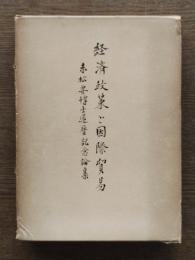 経済政策と国際貿易
赤松要博士還暦記念論集